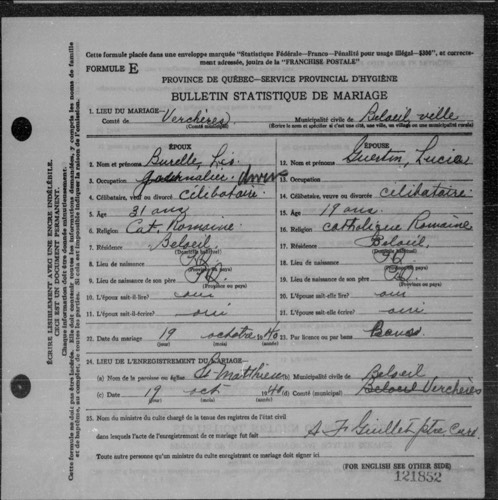 Cette formule placée dans une enveloppe marquée "Statistique Fédérale—Franco—Pénalité pour usage illégal—$300", et correcte-
ment adressée, jouira de la "FRANCHISE POSTALE"
FORMULE E
PROVINCE DE QUÉBEC—SERVICE PROVINCIAL D'HYGIÈNE
BULLETIN STATISTIQUE DE MARIAGE
1. LIEU DU MARIAGE—
Comté de Verchères Municipalité civile de Beloeil ville
(Comté municipal) (Ecrire le nom et spécifier si c'est une cité, une ville, un village ou une municipalité rurale)
ÉPOUX ÉPOUSE
2. Nom et prénoms Burelle, 13. Nom et prénoms Guertin, Lucia
3. Occupation Journalier 13. Occupation
4. Célibataire, veuf ou divorcé Célibataire 14. Célibataire, veuve ou divorcée célibataire
5. Age 31 ans 15. Age 19 ans
6. Religion Cat. Romaine 16. Religion catholique Romaine
7. Résidence Beloeil 17. Résidence Beloeil
8. Lieu de naissance P.Q. 18. Lieu de naissance P.Q.
(Province ou pays) (Province ou pays)
9. Lieu de naissance de son père P.Q. 19. Lieu de naissance de son père P.Q.
(Province ou pays) (Province ou pays)
10. L'époux sait-il lire? oui 20. L'épouse sait-elle lire? oui
11. L'époux sait-il écrire? oui 21. L'épouse sait-elle écrire? oui
22. Date du mariage 19 octobre 1940 23. Par licence ou par bans? Bans
24. LIEU DE L'ENREGISTREMENT DU MARIAGE—
(a) Nom de la paroisse ou église St Matthieu (b) Municipalité civile de Beloeil
(c) Date 19 oct 1940 (d) Comté (municipal) Beloeil Verchères
25. Nom du ministre du culte chargé de la tenue des registres de l'état civil
dans lesquels l'acte de l'enregistrement de ce mariage fut fait A F Guillet ptre curé
Toute autre personne qu'un ministre du culte doit signer ici.
(FOR ENGLISH SEE OTHER SIDE)
121852
ÉCRIRE LISIBLEMENT AVEC UNE ENCRE INDÉLÉBILE.
CECI EST UN DOCUMENT PERMANENT.